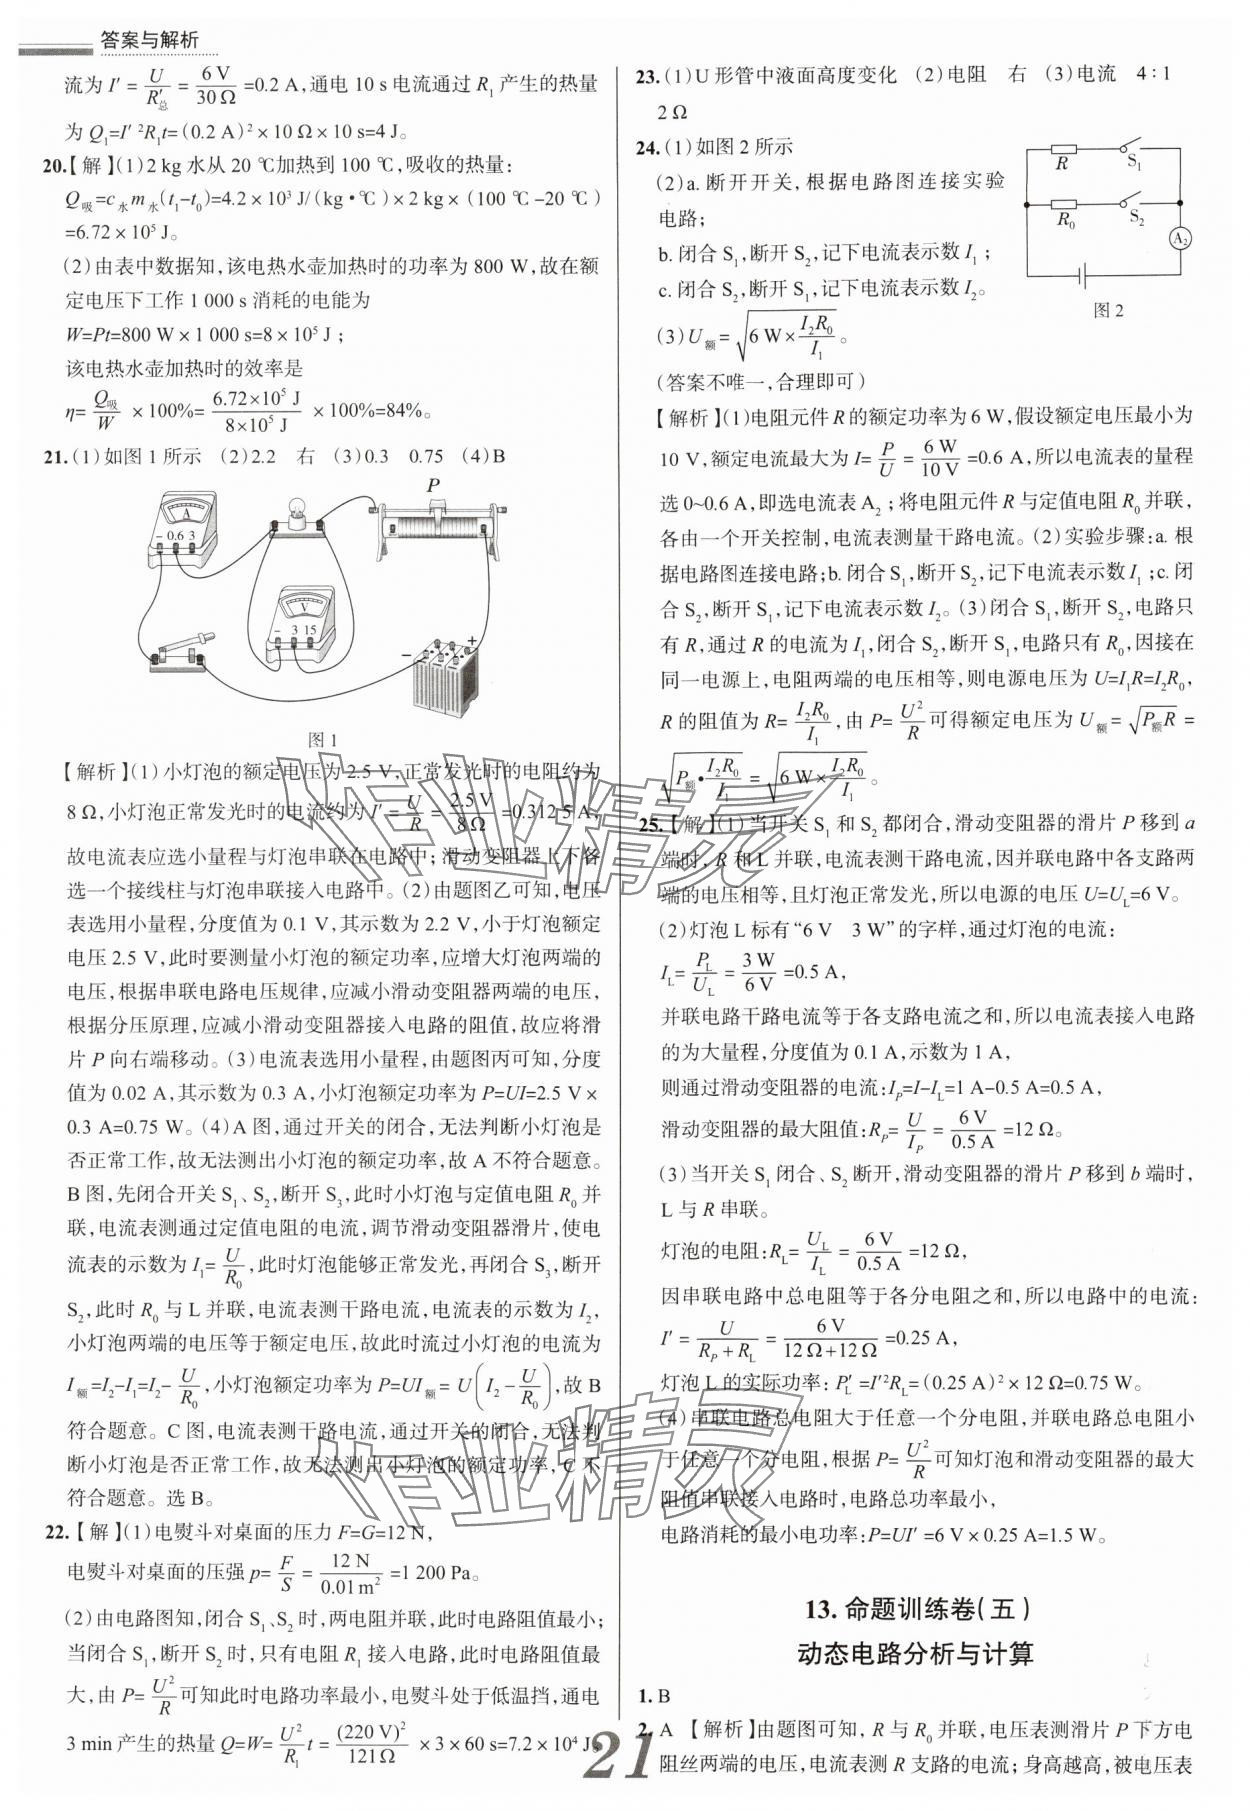 答案与解析
流为 I′ = U/R′总 = 6 V/30 Ω =0.2 A,通电 10 s 电流通过 R₁ 产生的热量
为 Q₁=I′²R₁t=(0.2 A)²×10 Ω×10 s=4 J。
20.【解】(1)2 kg 水从 20 ℃加热到 100 ℃,吸收的热量:
Q吸=c水m水(t₁-t₀)=4.2×10³ J/(kg·℃)×2 kg×(100 ℃-20 ℃)
=6.72×10⁵ J。
(2)由表中数据知,该电热水壶加热时的功率为 800 W,故在额
定电压下工作 1 000 s 消耗的电能为
W=Pt=800 W×1 000 s=8×10⁵ J;
该电热水壶加热时的效率是
η= Q吸/W ×100%= 6.72×10⁵ J/8×10⁵ J ×100%=84%。
21.(1)如图 1 所示 (2)2.2 右 (3)0.3 0.75 (4)B
P
A
- 0.6 3
V
- 3 15
- +
图 1
【解析】(1)小灯泡的额定电压为 2.5 V,正常发光时的电阻约为
8 Ω,小灯泡正常发光时的电流约为 I′= U/R = 2.5 V/8 Ω =0.312 5 A,
故电流表应选小量程与灯泡串联在电路中;滑动变阻器上下各
选一个接线柱与灯泡串联接入电路中。(2)由题图乙可知,电压
表选用小量程,分度值为 0.1 V,其示数为 2.2 V,小于灯泡额定
电压 2.5 V,此时要测量小灯泡的额定功率,应增大灯泡两端的
电压,根据串联电路电压规律,应减小滑动变阻器两端的电压,
根据分压原理,应减小滑动变阻器接入电路的阻值,故应将滑
片 P 向右端移动。(3)电流表选用小量程,由题图丙可知,分度
值为 0.02 A,其示数为 0.3 A,小灯泡额定功率为 P=UI=2.5 V×
0.3 A=0.75 W。(4)A 图,通过开关的闭合,无法判断小灯泡是
否正常工作,故无法测出小灯泡的额定功率,故 A 不符合题意。
B 图,先闭合开关 S₁、S₂,断开 S₃,此时小灯泡与定值电阻 R₀ 并
联,电流表测通过定值电阻的电流,调节滑动变阻器滑片,使电
流表的示数为 I₁= U/R₀,此时灯泡能够正常发光,再闭合 S₃,断开
S₂,此时 R₀ 与 L 并联,电流表测干路电流,电流表的示数为 I₂,
小灯泡两端的电压等于额定电压,故此时流过小灯泡的电流为
I额=I₂-I₁=I₂- U/R₀,小灯泡额定功率为 P=UI额= U(I₂- U/R₀),故 B
符合题意。C 图,电流表测干路电流,通过开关的闭合,无法判
断小灯泡是否正常工作,故无法测出小灯泡的额定功率,C 不
符合题意。选 B。
22.【解】(1)电熨斗对桌面的压力 F=G=12 N,
电熨斗对桌面的压强 p= F/S = 12 N/0.01 m² =1 200 Pa。
(2)由电路图知,闭合 S₁、S₂ 时,两电阻并联,此时电路阻值最小;
当闭合 S₁,断开 S₂ 时,只有电阻 R₁ 接入电路,此时电路阻值最
大,由 P= U²/R 可知此时电路功率最小,电熨斗处于低温挡,通电
3 min 产生的热量 Q=W= U²/R₁ t = (220 V)²/121 Ω ×3×60 s=7.2×10⁴ J。
23.(1)U 形管中液面高度变化 (2)电阻 右 (3)电流 4∶1
2 Ω
24.(1)如图 2 所示
(2)a. 断开开关,根据电路图连接实验
电路;
b. 闭合 S₁,断开 S₂,记下电流表示数 I₁;
c. 闭合 S₂,断开 S₁,记下电流表示数 I₂。
(3)U额= √(6 W× I₂R₀/I₁)。
(答案不唯一,合理即可)
R S₁
R₀ S₂
A₂
图 2
【解析】(1)电阻元件 R 的额定功率为 6 W,假设额定电压最小为
10 V,额定电流最大为 I= P/U = 6 W/10 V =0.6 A,所以电流表的量程
选 0~0.6 A,即选电流表 A₂;将电阻元件 R 与定值电阻 R₀ 并联,
各由一个开关控制,电流表测量干路电流。(2)实验步骤:a. 根
据电路图连接电路;b. 闭合 S₁,断开 S₂,记下电流表示数 I₁;c. 闭
合 S₂,断开 S₁,记下电流表示数 I₂。(3)闭合 S₁,断开 S₂,电路只
有 R,通过 R 的电流为 I₁,闭合 S₂,断开 S₁,电路只有 R₀,因接在
同一电源上,电阻两端的电压相等,则电源电压为 U=I₁R=I₂R₀,
R 的阻值为 R= I₂R₀/I₁,由 P= U²/R 可得额定电压为 U额= √(P额R) =
√(P额· I₂R₀/I₁) = √(6 W× I₂R₀/I₁)。
25.【解】(1)当开关 S₁ 和 S₂ 都闭合,滑动变阻器的滑片 P 移到 a
端时,R 和 L 并联,电流表测干路电流,因并联电路中各支路两
端的电压相等,且灯泡正常发光,所以电源的电压 U=U_L=6 V。
(2)灯泡 L 标有“6 V 3 W”的字样,通过灯泡的电流:
I_L= P_L/U_L = 3 W/6 V =0.5 A,
并联电路干路电流等于各支路电流之和,所以电流表接入电路
的为大量程,分度值为 0.1 A,示数为 1 A,
则通过滑动变阻器的电流:I_P=I-I_L=1 A-0.5 A=0.5 A,
滑动变阻器的最大阻值:R_P= U/I_P = 6 V/0.5 A =12 Ω。
(3)当开关 S₁ 闭合、S₂ 断开,滑动变阻器的滑片 P 移到 b 端时,
L 与 R 串联。
灯泡的电阻:R_L= U_L/I_L = 6 V/0.5 A =12 Ω,
因串联电路中总电阻等于各分电阻之和,所以电路中的电流:
I′= U/(R_P+R_L) = 6 V/(12 Ω+12 Ω) =0.25 A,
灯泡 L 的实际功率:P′_L=I′²R_L=(0.25 A)²×12 Ω=0.75 W。
(4)串联电路总电阻大于任意一个分电阻,并联电路总电阻小
于任意一个分电阻,根据 P= U²/R 可知灯泡和滑动变阻器的最大
阻值串联接入电路时,电路总功率最小,
电路消耗的最小电功率:P=UI′=6 V×0.25 A=1.5 W。
13. 命题训练卷(五)
动态电路分析与计算
1. B
2. A 【解析】由题图可知,R 与 R₀ 并联,电压表测滑片 P 下方电
阻丝两端的电压,电流表测 R 支路的电流;身高越高,被电压表
21
作业精灵
作业精灵